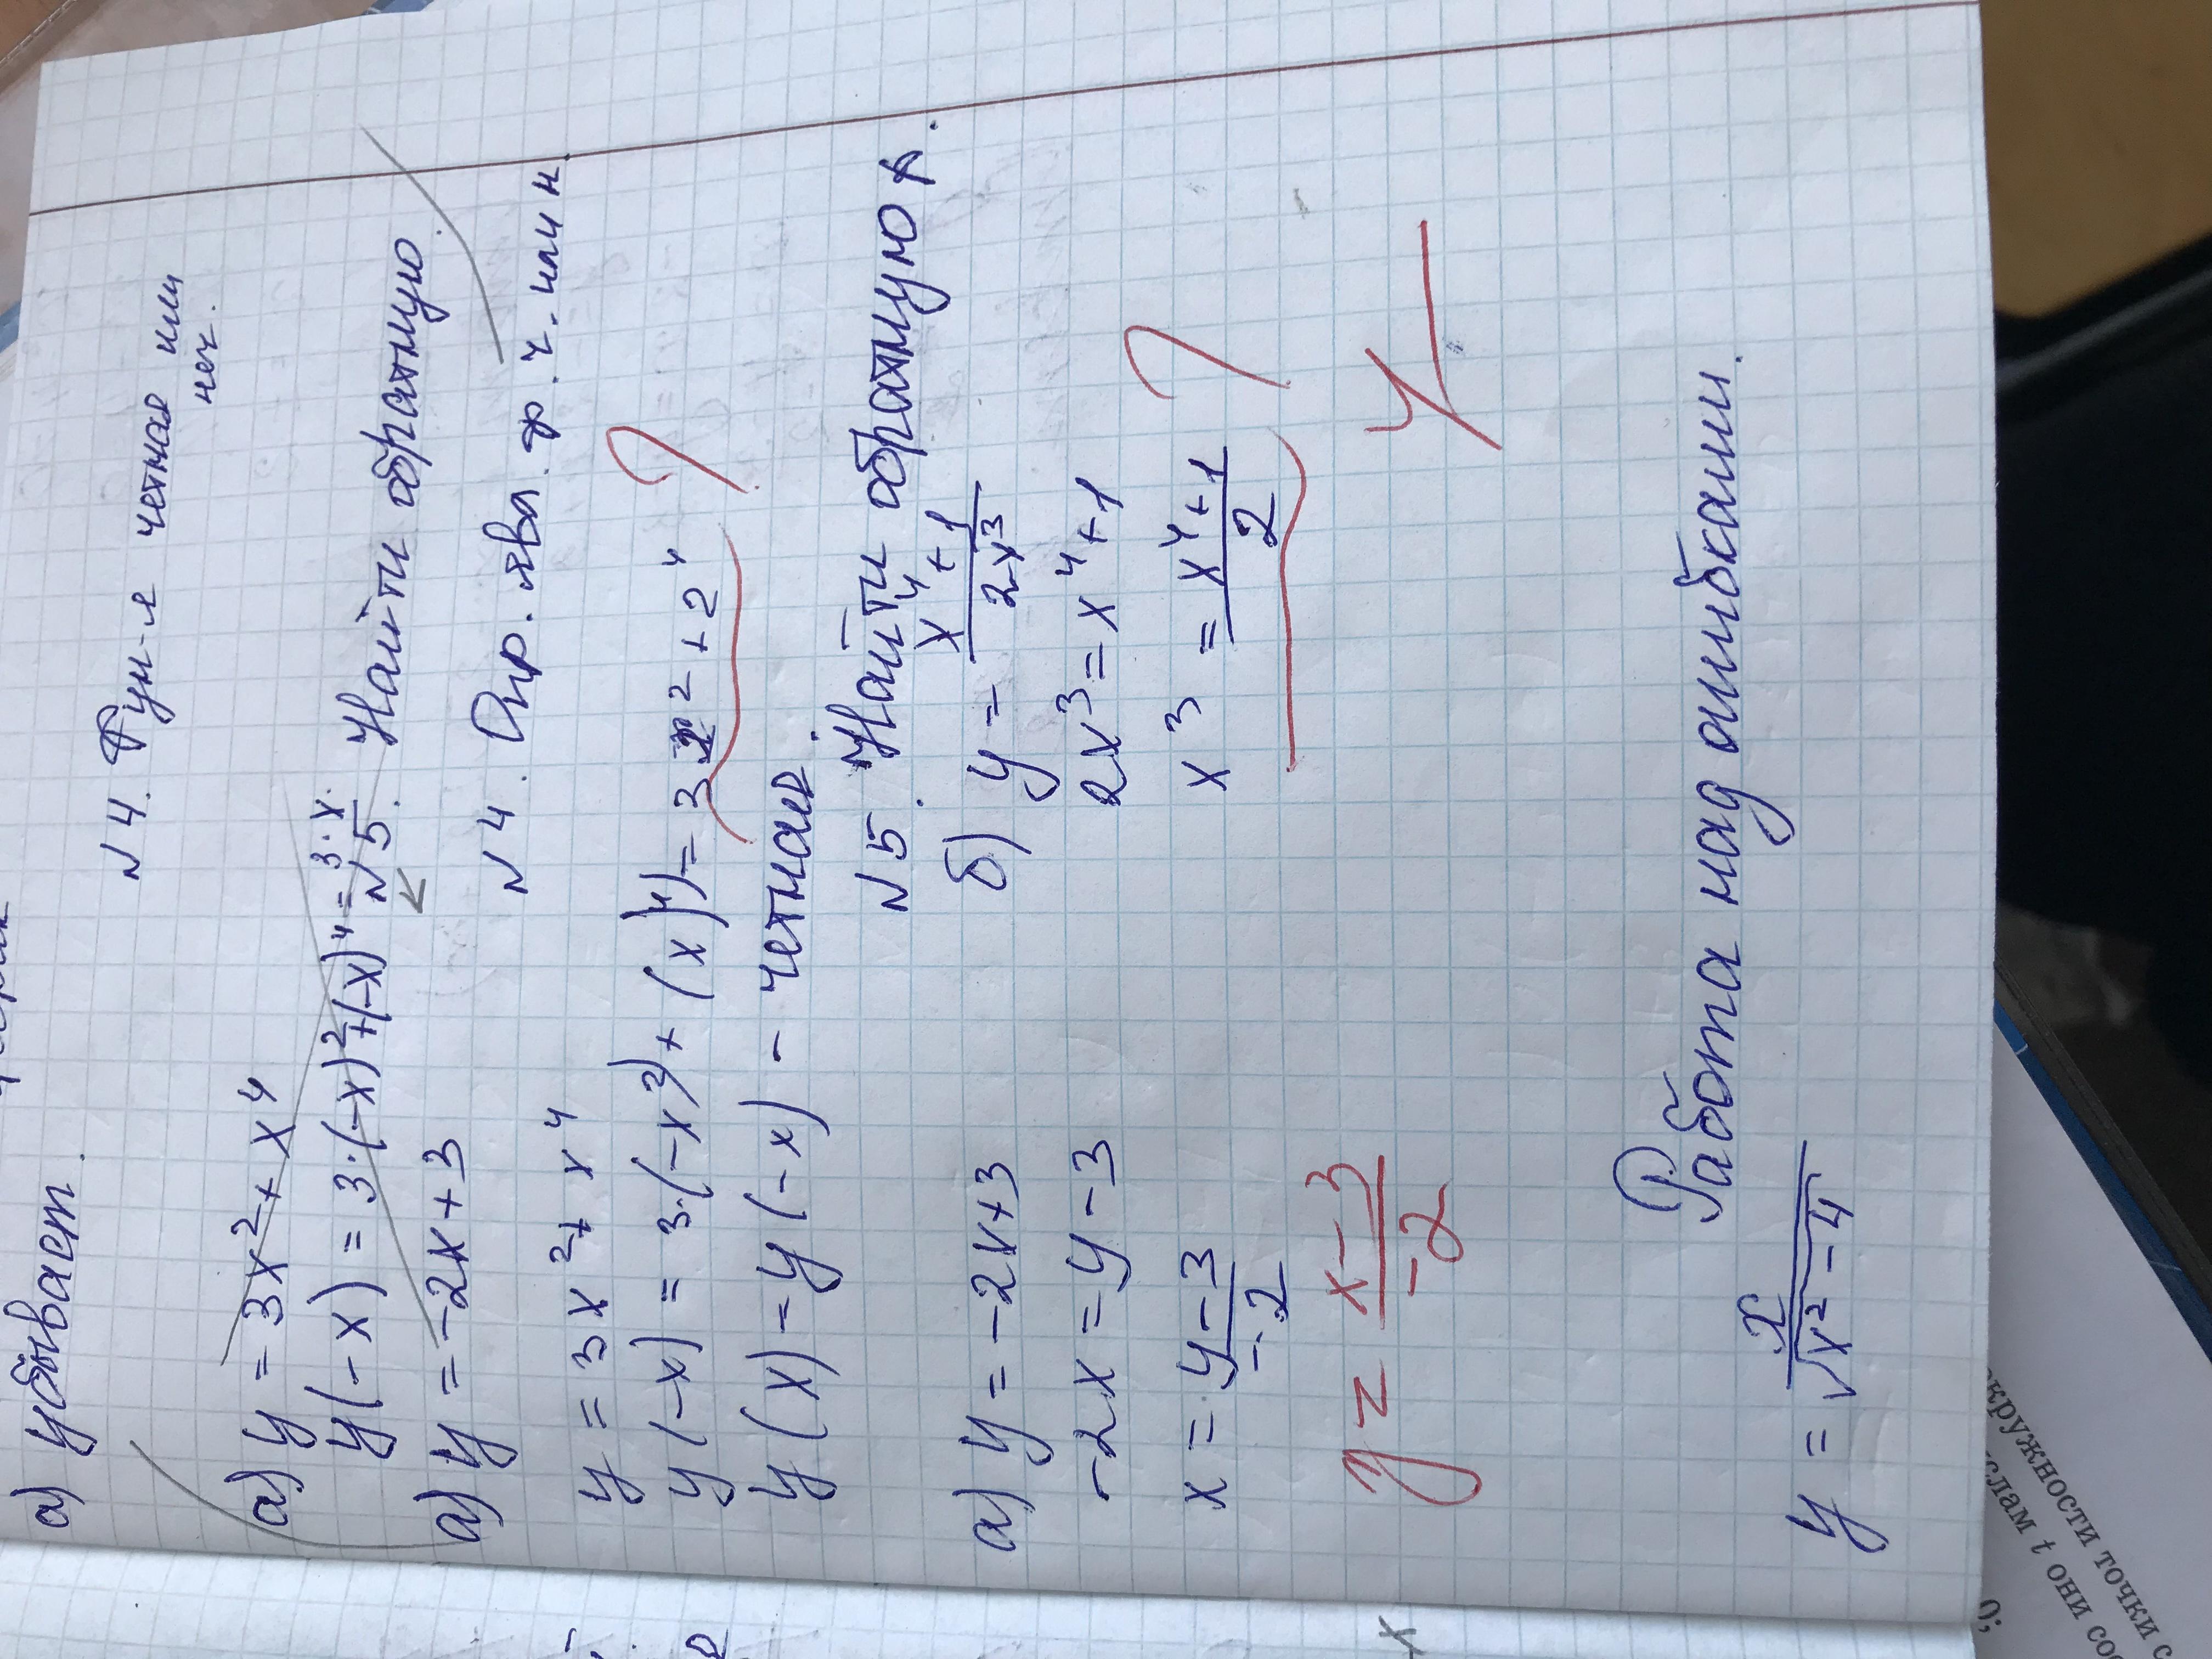 а) убывает.
№4. Фун-я четная или
неч.
а) y = 3x² + x⁴
y(-x) = 3·(-x)² + (-x)⁴ = 3·x.
№5. Найти обратную
а) y = -2x + 3
№4. Опр. явл. ф. ч. или н.
y = 3x² + x⁴
y(-x) = 3·(-x²) + (x)⁴) = 3x² + 2⁴
?
y(x) = y(-x) - четная
№5. Найти обратную
а) y = -2x+3
б) y = x⁴+1 / 2x³
-2x = y - 3
2x³ = x⁴+1
x = y-3 / -2
x³ = x⁴+1 / 2
?
y = x-3 / -2
4
Работа над ошибками.
y = x / √x²-4
окружности точки с
числам t они соо
0;
x